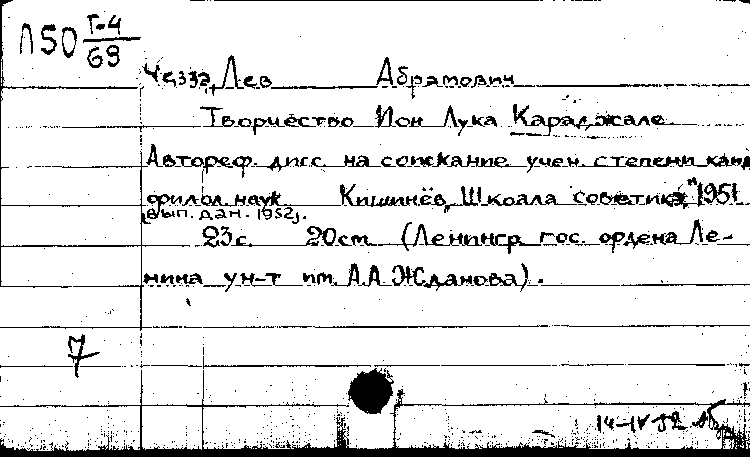 Л50 Г-4/69
Чезза, Лев Абрамович
Творчество Ион Лука Караджале.
Автореф. дисс. на соискание учен. степени канд
филол. наук Кишинёв, "Шкоала советикэ", 1951
[вып. дан. 1952].
23с. 20см (Ленингр. гос. ордена Ле-
нина ун-т им. А.А. Жданова).
7
14-IV 52